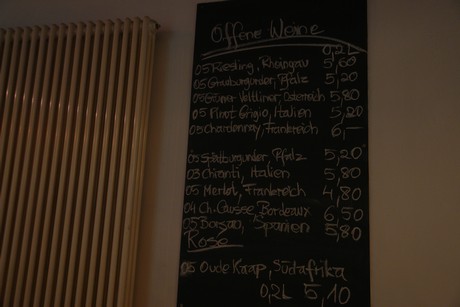 Offene Weine
0,2L
05 Riesling, Rheingau 5,60
05 Grauburgunder, Pfalz 5,20
05 Grüner Veltliner, Österreich 5,80
05 Pinot Grigio, Italien 5,20
05 Chardonnay, Frankreich 6,-
05 Spätburgunder, Pfalz 5,20
03 Chianti, Italien 5,80
05 Merlot, Frankreich 4,80
04 Ch. Causse, Bordeaux 6,50
05 Borsao, Spanien 5,80
Rosé
05 Oude Kaap, Südafrika
0,2L 5,10